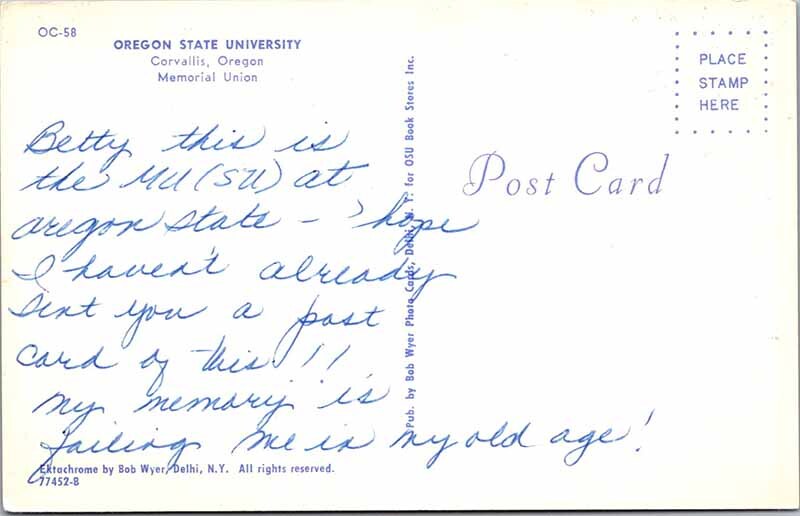 OC-58
OREGON STATE UNIVERSITY
Corvallis, Oregon
Memorial Union
PLACE
STAMP
HERE
Post Card
Betty this is
the MU (SU) at
oregon state - 'hope
I haven't already
sent you a post
card of this!!
my memory is
failing me in my old age!
Pub. by Bob Wyer Photo Cards, Delhi, N. Y. for OSU Book Stores Inc.
Ektachrome by Bob Wyer, Delhi, N.Y. All rights reserved.
77452-B